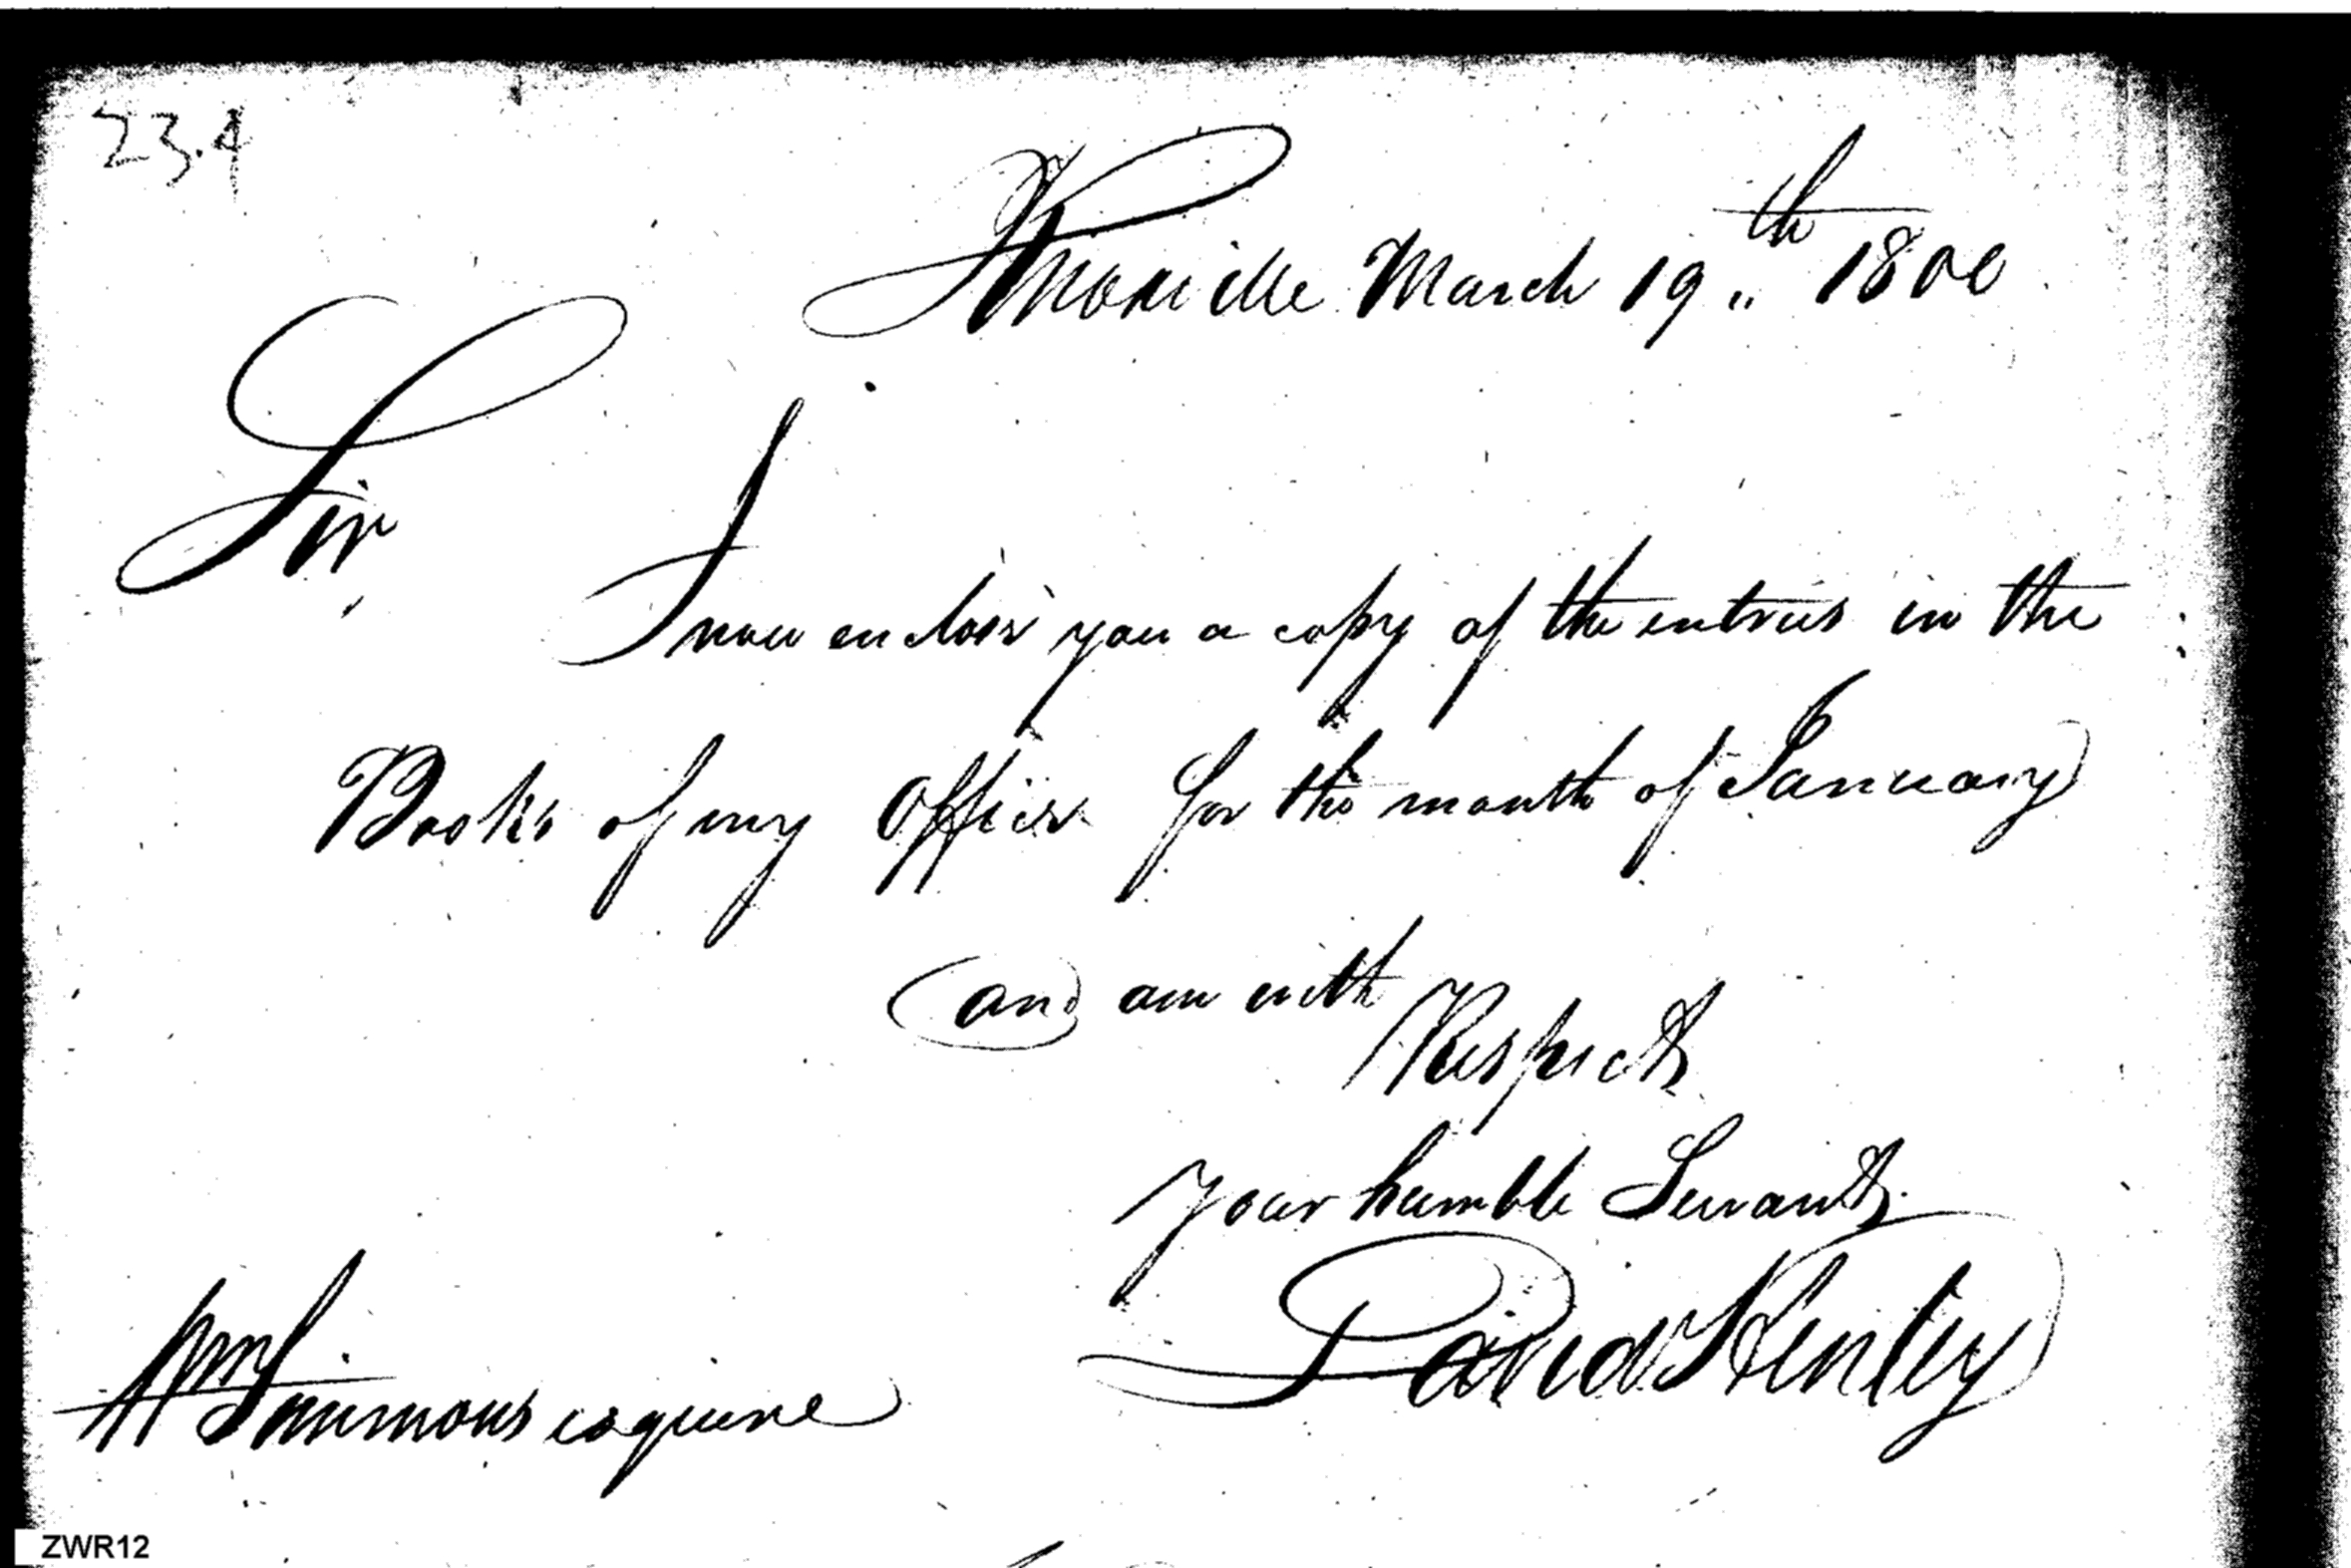 23.4
Knoxville March 19th 1800
Sir,
I now enclose you a copy of the entries in the
Books of my Office for the month of January
and am with
Respect
Your humble Servant
David Henley
Wm Simmons esquire
ZWR12